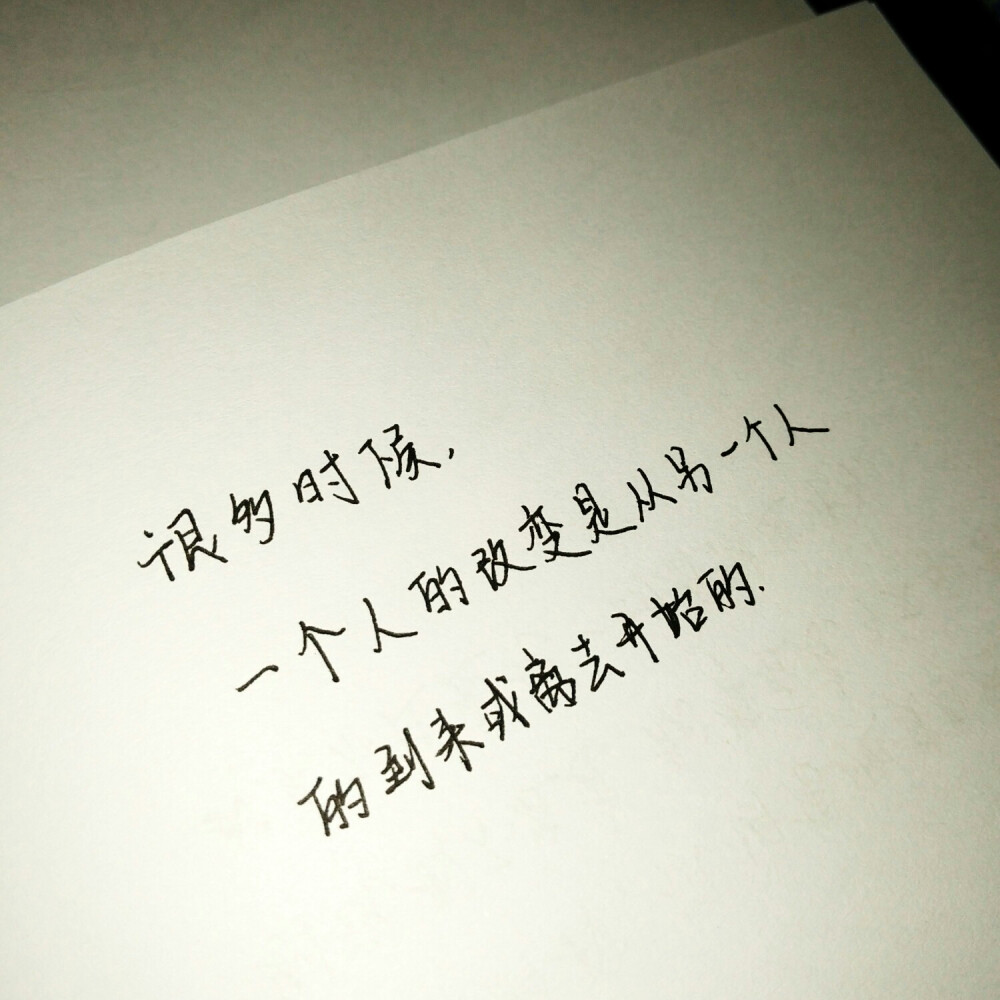 很多时候.
一个人的改变是从另一个人
的到来或离去开始的.